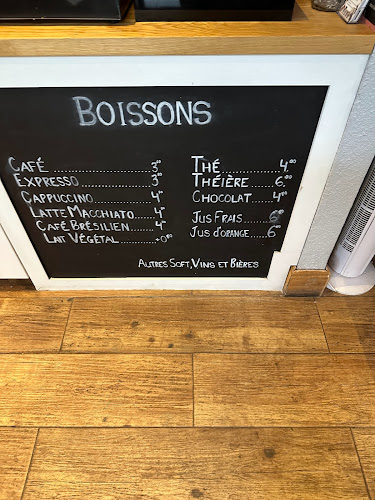 BOISSONS
CAFÉ 3.⁰⁰
EXPRESSO 3.⁰⁰
CAPPUCCINO 4.⁰⁰
LATTE MACCHIATO 4.⁰⁰
CAFÉ BRÉSILIEN 4.⁰⁰
LAIT VÉGÉTAL +0.⁸⁰
THÉ 4.⁰⁰
THÉIÈRE 6.⁰⁰
CHOCOLAT 4.⁰⁰
JUS FRAIS 6.⁰⁰
JUS D'ORANGE 6.⁰⁰
AUTRES SOFT, VINS ET BIÈRES